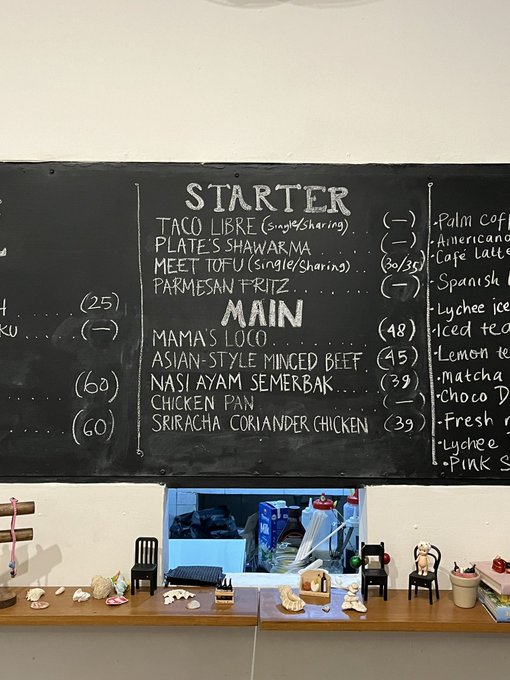 (25)
KU (—)
(60)
(60)
STARTER
TACO LIBRE (single/sharing) (—)
PLATE'S SHAWARMA (—)
MEET TOFU (single/sharing) (30/35)
PARMESAN FRITZ (—)
MAIN
MAMA'S LOCO (48)
ASIAN-STYLE MINCED BEEF (45)
NASI AYAM SEMERBAK (39)
CHICKEN PAN (—)
SRIRACHA CORIANDER CHICKEN (39)
•Palm Coff
•Americano
•Café Latte
•Spanish
•Lychee ice
•Iced tea
•Lemon te
•matcha
•Choco D
•Fresh
•Lychee
•Pink S